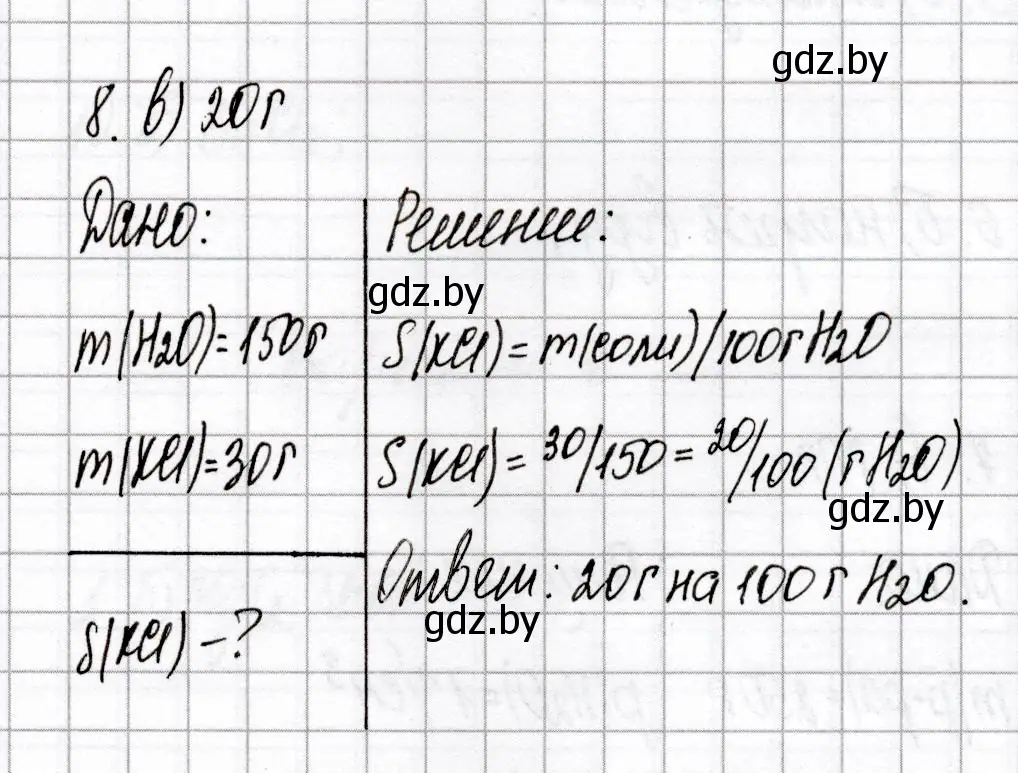 gdz.by
8. в) 20г
Дано:
m(H2O)=150г
m(KCl)=30г
S(KCl) -?
Решение:
gdz.by
S(KCl) = m(соли)/100г H2O
S(KCl) = 30/150 = 20/100 (г H2O)
gdz.by
Ответ: 20г на 100г H2O.
gdz.by